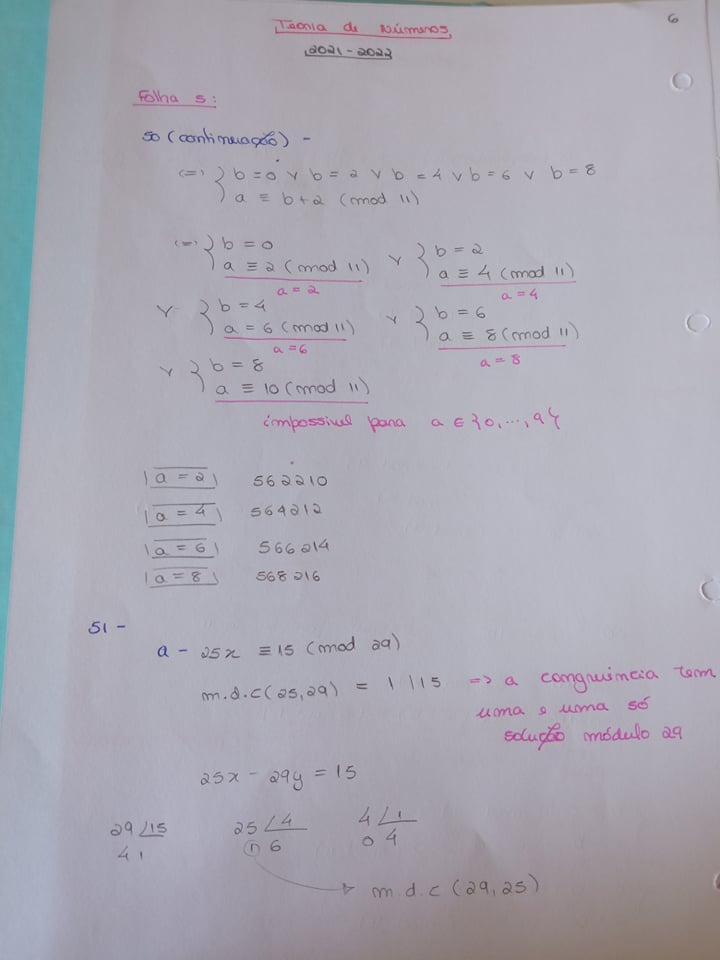 Teoria de Números 6
2021-2022
Folha 5:
50 (continuação) -
(=) { b = 0 ∨ b = 2 ∨ b = 4 ∨ b = 6 ∨ b = 8
a ≡ b+2 (mod 11)
(=) { b = 0 ∨ { b = 2
a ≡ 2 (mod 11) a ≡ 4 (mod 11)
a = 2 a = 4
∨ { b = 4 ∨ { b = 6
a = 6 (mod 11) a ≡ 8 (mod 11)
a = 6 a = 8
∨ { b = 8
a ≡ 10 (mod 11)
impossível para a ∈ {0, ..., 9}
|a = 2| 562210
|a = 4| 564212
|a = 6| 566214
|a = 8| 568216
51 -
a - 25x ≡ 15 (mod 29)
m.d.c (25,29) = 1 | 15 => a congruência tem
uma e uma só
solução módulo 29
25x - 29y = 15
29 /15 25 /4 4 /1
4 1 1 6 0 4
m.d.c (29,25)